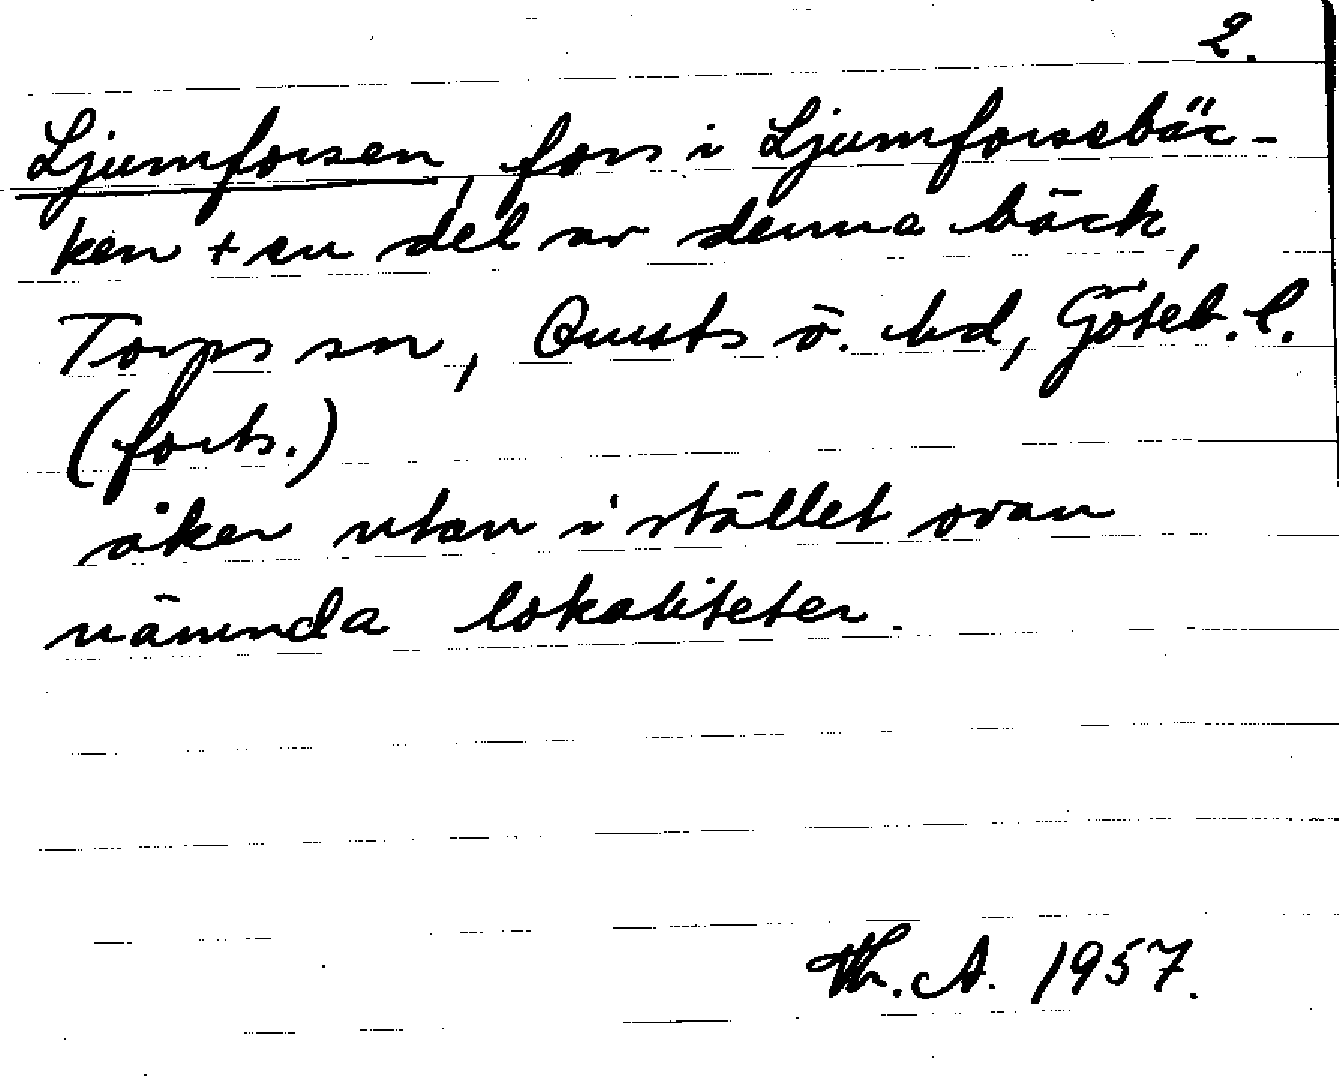 2.
Ljumforsen, fors i Ljumforsebäc-
ken + en del av denna bäck,
Torps sn, Orusts ö. hd, Göteb. l.
(forts.)
åker utan i stället ovan
nämnda lokaliteter.
Th. A. 1957.